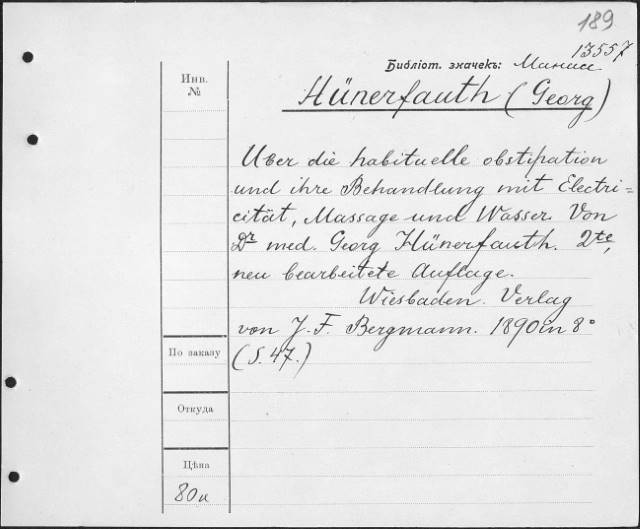 189
13557
Библіот. значекъ:
Инв.
№
Hünerfauth (Georg)
Über die habituelle obstipation
und ihre Behandlung mit Electri=
cität, Massage und Wasser. Von
Dr med. Georg Hünerfauth. 2te,
neu bearbeitete Auflage.
Wiesbaden. Verlag
von J. F. Bergmann. 1890 in 8°
По заказу
(S. 47.)
Откуда
Цѣна
80